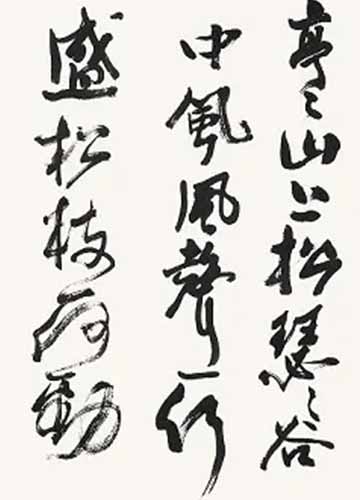 亭〻山上松瑟〻谷
中風風聲一何
盛松枝一何勁